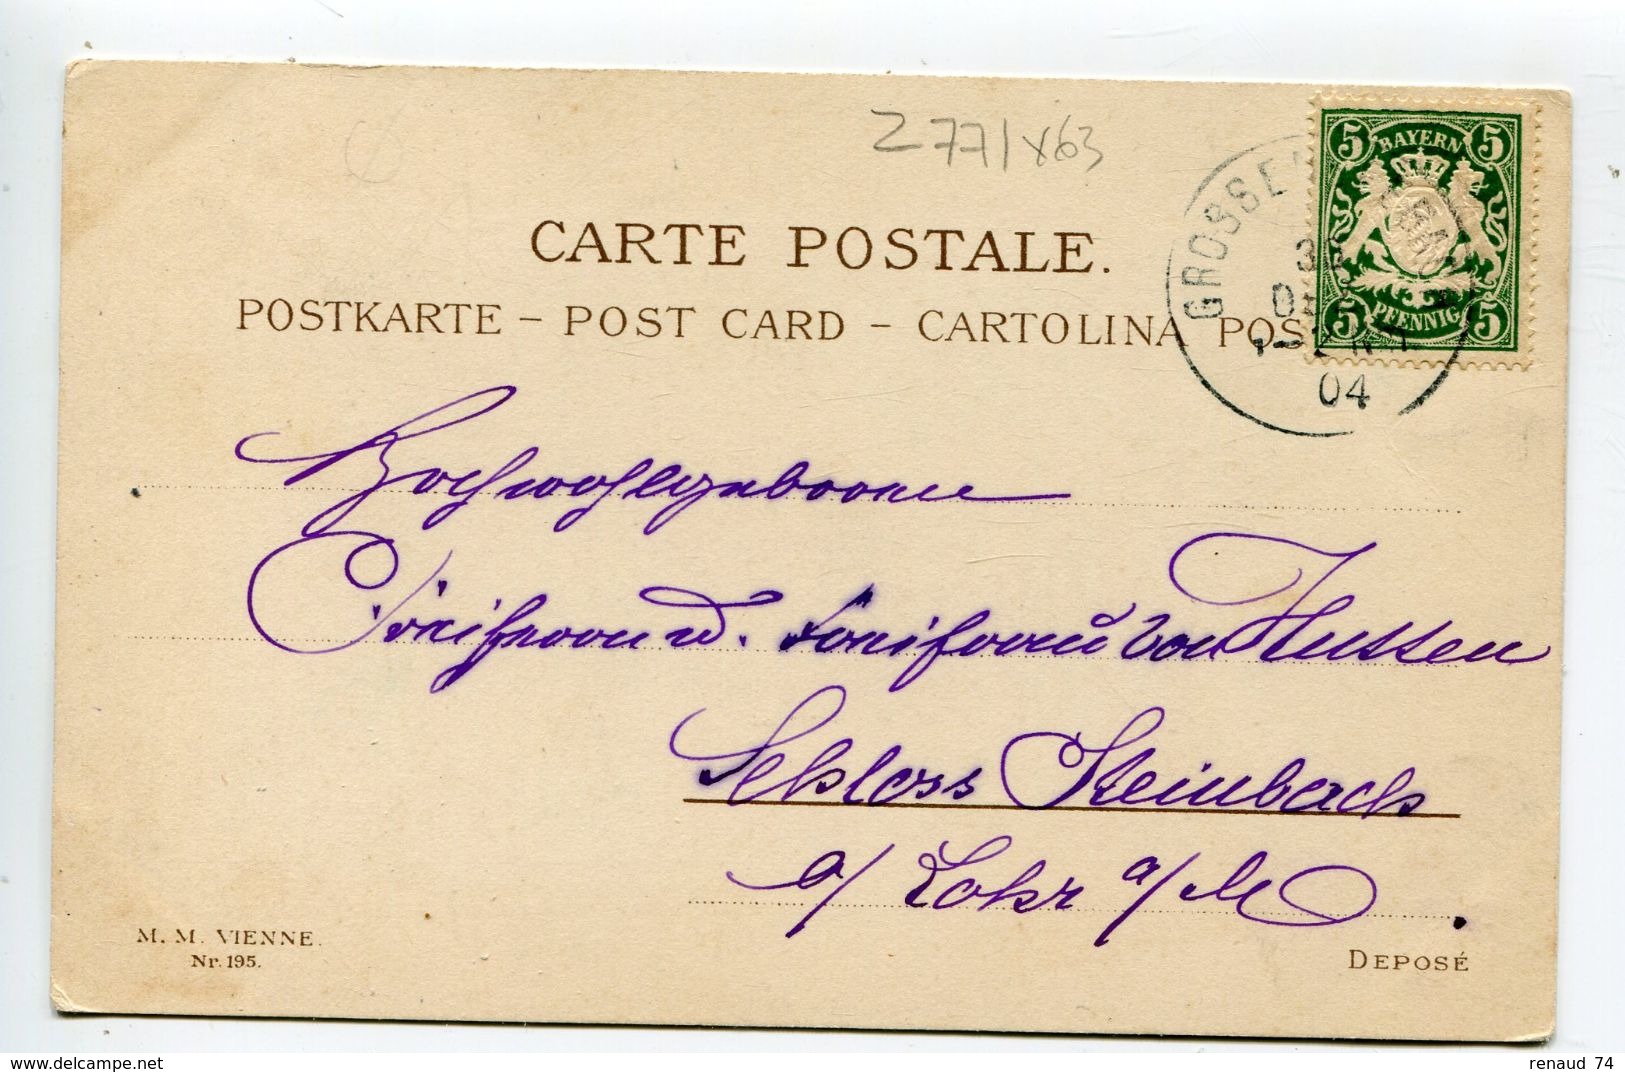 Z 771x63
CARTE POSTALE.
POSTKARTE – POST CARD – CARTOLINA POS
5 BAYERN 5
5 PFENNIG 5
GROSSEN
04
Hochwohlgeboren
u. von Hutten
Schloss Steinbach
a/ Lohr a/M
M. M. VIENNE.
Nr. 195.
DEPOSÉ
www.delcampe.net
renaud 74